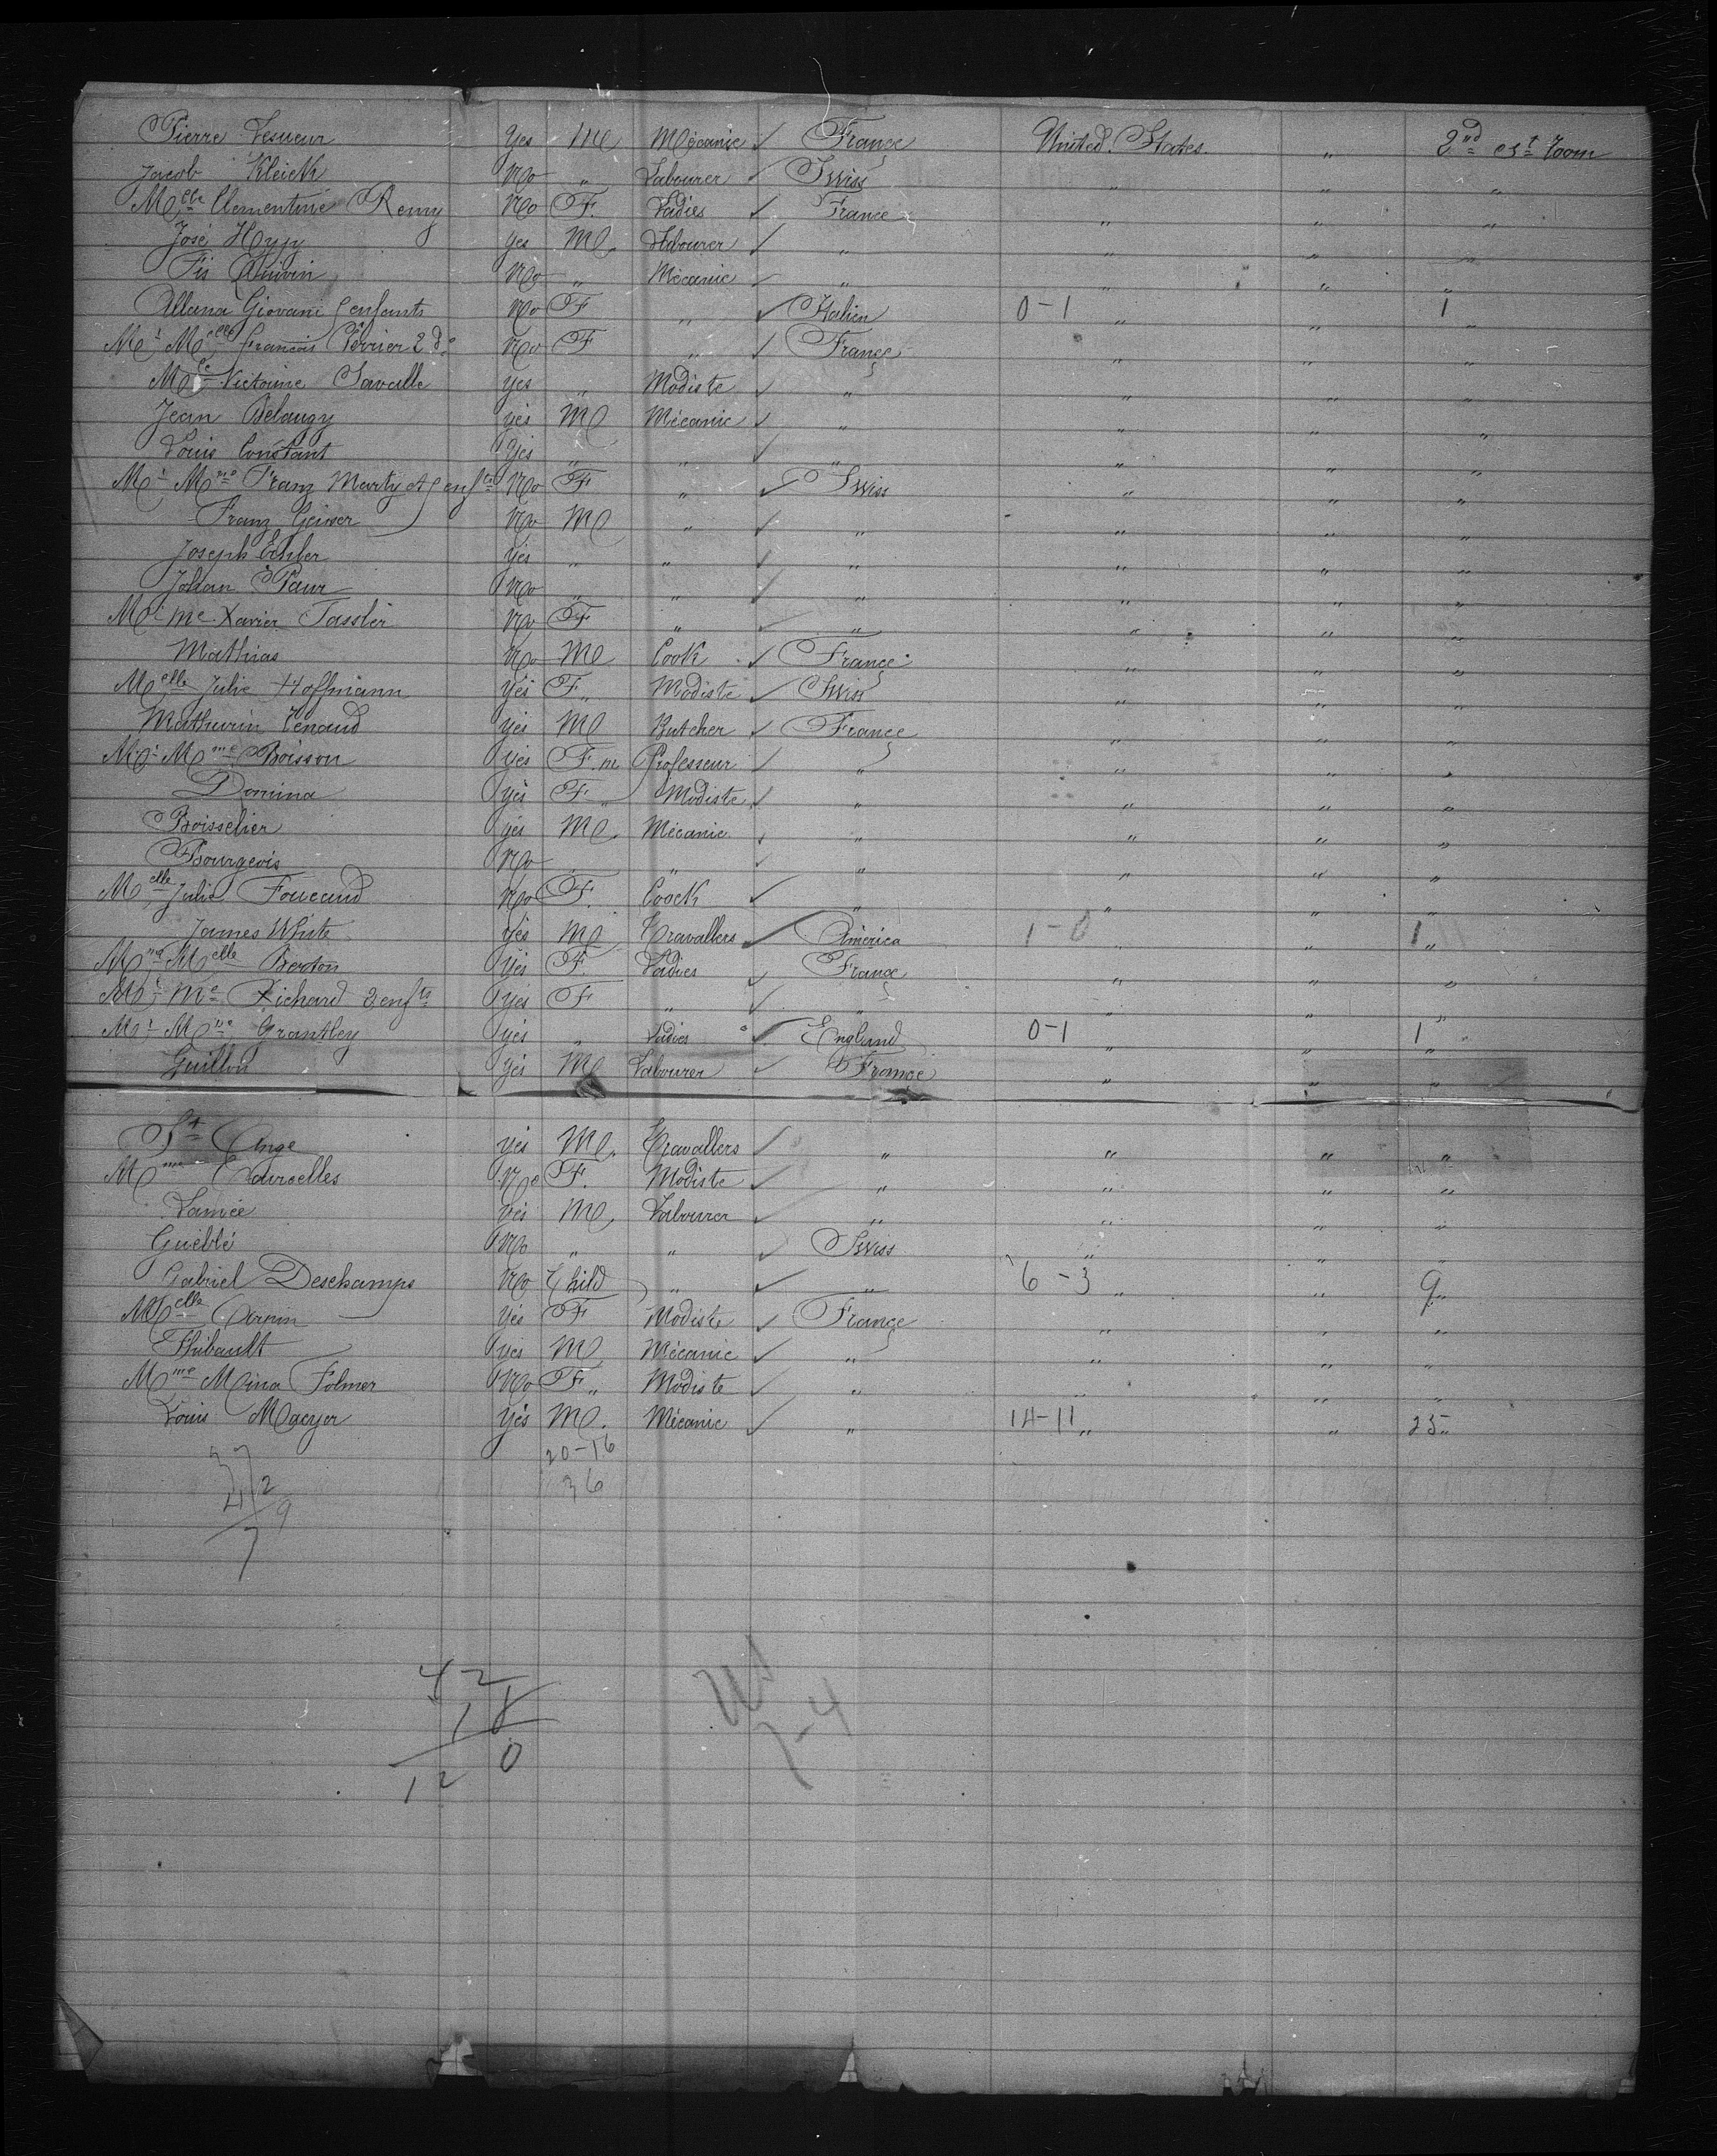 Pierre Lesueur Yes M Mécanic ✓ France United States „ 2nd cst room
Jacob Kleick No „ Labourer ✓ Swiss „ „ „
Melle Clementine Remy No F. Ladies ✓ France „ „ „
José Hoyy yes M. Labourer ✓ „ „ „ „
No „ Mécanic ✓ „ „ „ „
Giovani enfants No F „ ✓ Italien 0-1 „ „ 1 „
Mr Melle francois Périer 2 do No F „ ✓ France „ „ „
Victorine Savalle yes „ Modiste ✓ „ „ „ „
Jean Delaugy yes M Mécanic ✓ „ „ „ „
Louis Constant yes „ „ ✓ „ „ „ „
Mr Mme Franz Marty et enfts No F „ ✓ Swiss „ „ „
Franz Geiser No M „ ✓ „ „ „ „
Joseph yes „ „ ✓ „ „ „ „
Johan Paur No „ „ ✓ „ „ „ „
Mr Me Xavier Tassler No F „ ✓ „ „ „ „
Mathias No M Cook ✓ France „ „ „
Melle Julie Hoffmann yes F „ Modiste ✓ Swiss „ „ „
Mathurin Renaud yes M Butcher ✓ France „ „ „
Mr Mme Boisson yes F. m Professeur ✓ „ „ „ „
Domina yes F „ Modiste ✓ „ „ „ „
Boisselier yes M. Mécanic ✓ „ „ „ „
Bourgeois No „ „ ✓ „ „ „ „
Melle Julie Foucaud No F. Coock ✓ „ „ „ „
James White yes M Travallers ✓ America 1-0 „ „ 1 „
Mme Melle Berton yes F. Ladies ✓ France „ „ „
Mr Me Richard 2 enfts yes F „ ✓ „ „ „ „
Mr Mme Grantley yes „ Ladies ✓ England 0-1 „ „ 1 „
Guillou yes M Labourer ✓ France „ „ „
St Ange yes M. Travallers ✓ „ „ „ „
Mme Courcelles No F. Modiste ✓ „ „ „ „
Lamée yes M. Labourer ✓ „ „ „ „
Guéblé No „ „ ✓ Swiss „ „ „
Gabriel Deschamps No Child „ ✓ „ 6-3 „ „ 9 „
Melle yes F Modiste ✓ France „ „ „
Thibault yes M Mécanic ✓ „ „ „ „
Mme Mina Folmer No F „ Modiste ✓ „ „ „ „
Louis Maeyer yes M. Mécanic ✓ „ 14-11 „ „ 25 „
20-16
36
37
42
9
7
42
18
120
7-4